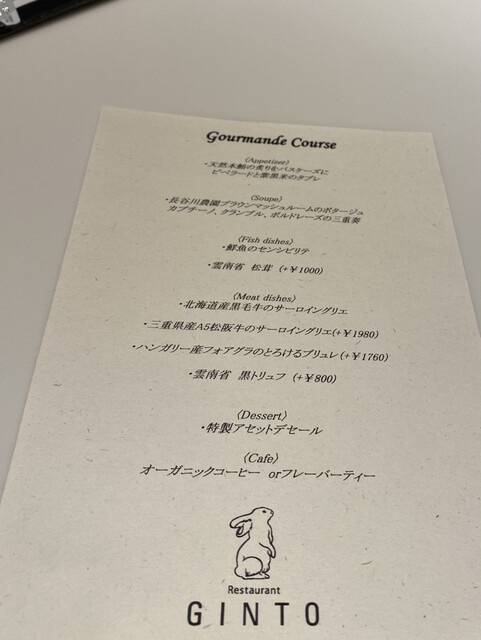 Gourmande Course
〈Appetizer〉
・天然本鮪の炙りをバスケーズに
ピペラードと紫黒米のタブレ
〈Soupe〉
・長谷川農園ブラウンマッシュルームのポタージュ
カプチーノ、クランブル、ボルドレーズの三重奏
〈Fish dishes〉
・鮮魚のセンシビリテ
・雲南省 松茸 (+￥1000)
〈Meat dishes〉
・北海道産黒毛牛のサーロイングリエ
・三重県産A5松阪牛のサーロイングリエ(+￥1980)
・ハンガリー産フォアグラのとろけるブリュレ(+￥1760)
・雲南省 黒トリュフ (+￥800)
〈Dessert〉
・特製アセットデセール
〈Cafe〉
オーガニックコーヒー orフレーバーティー
Restaurant
GINTO